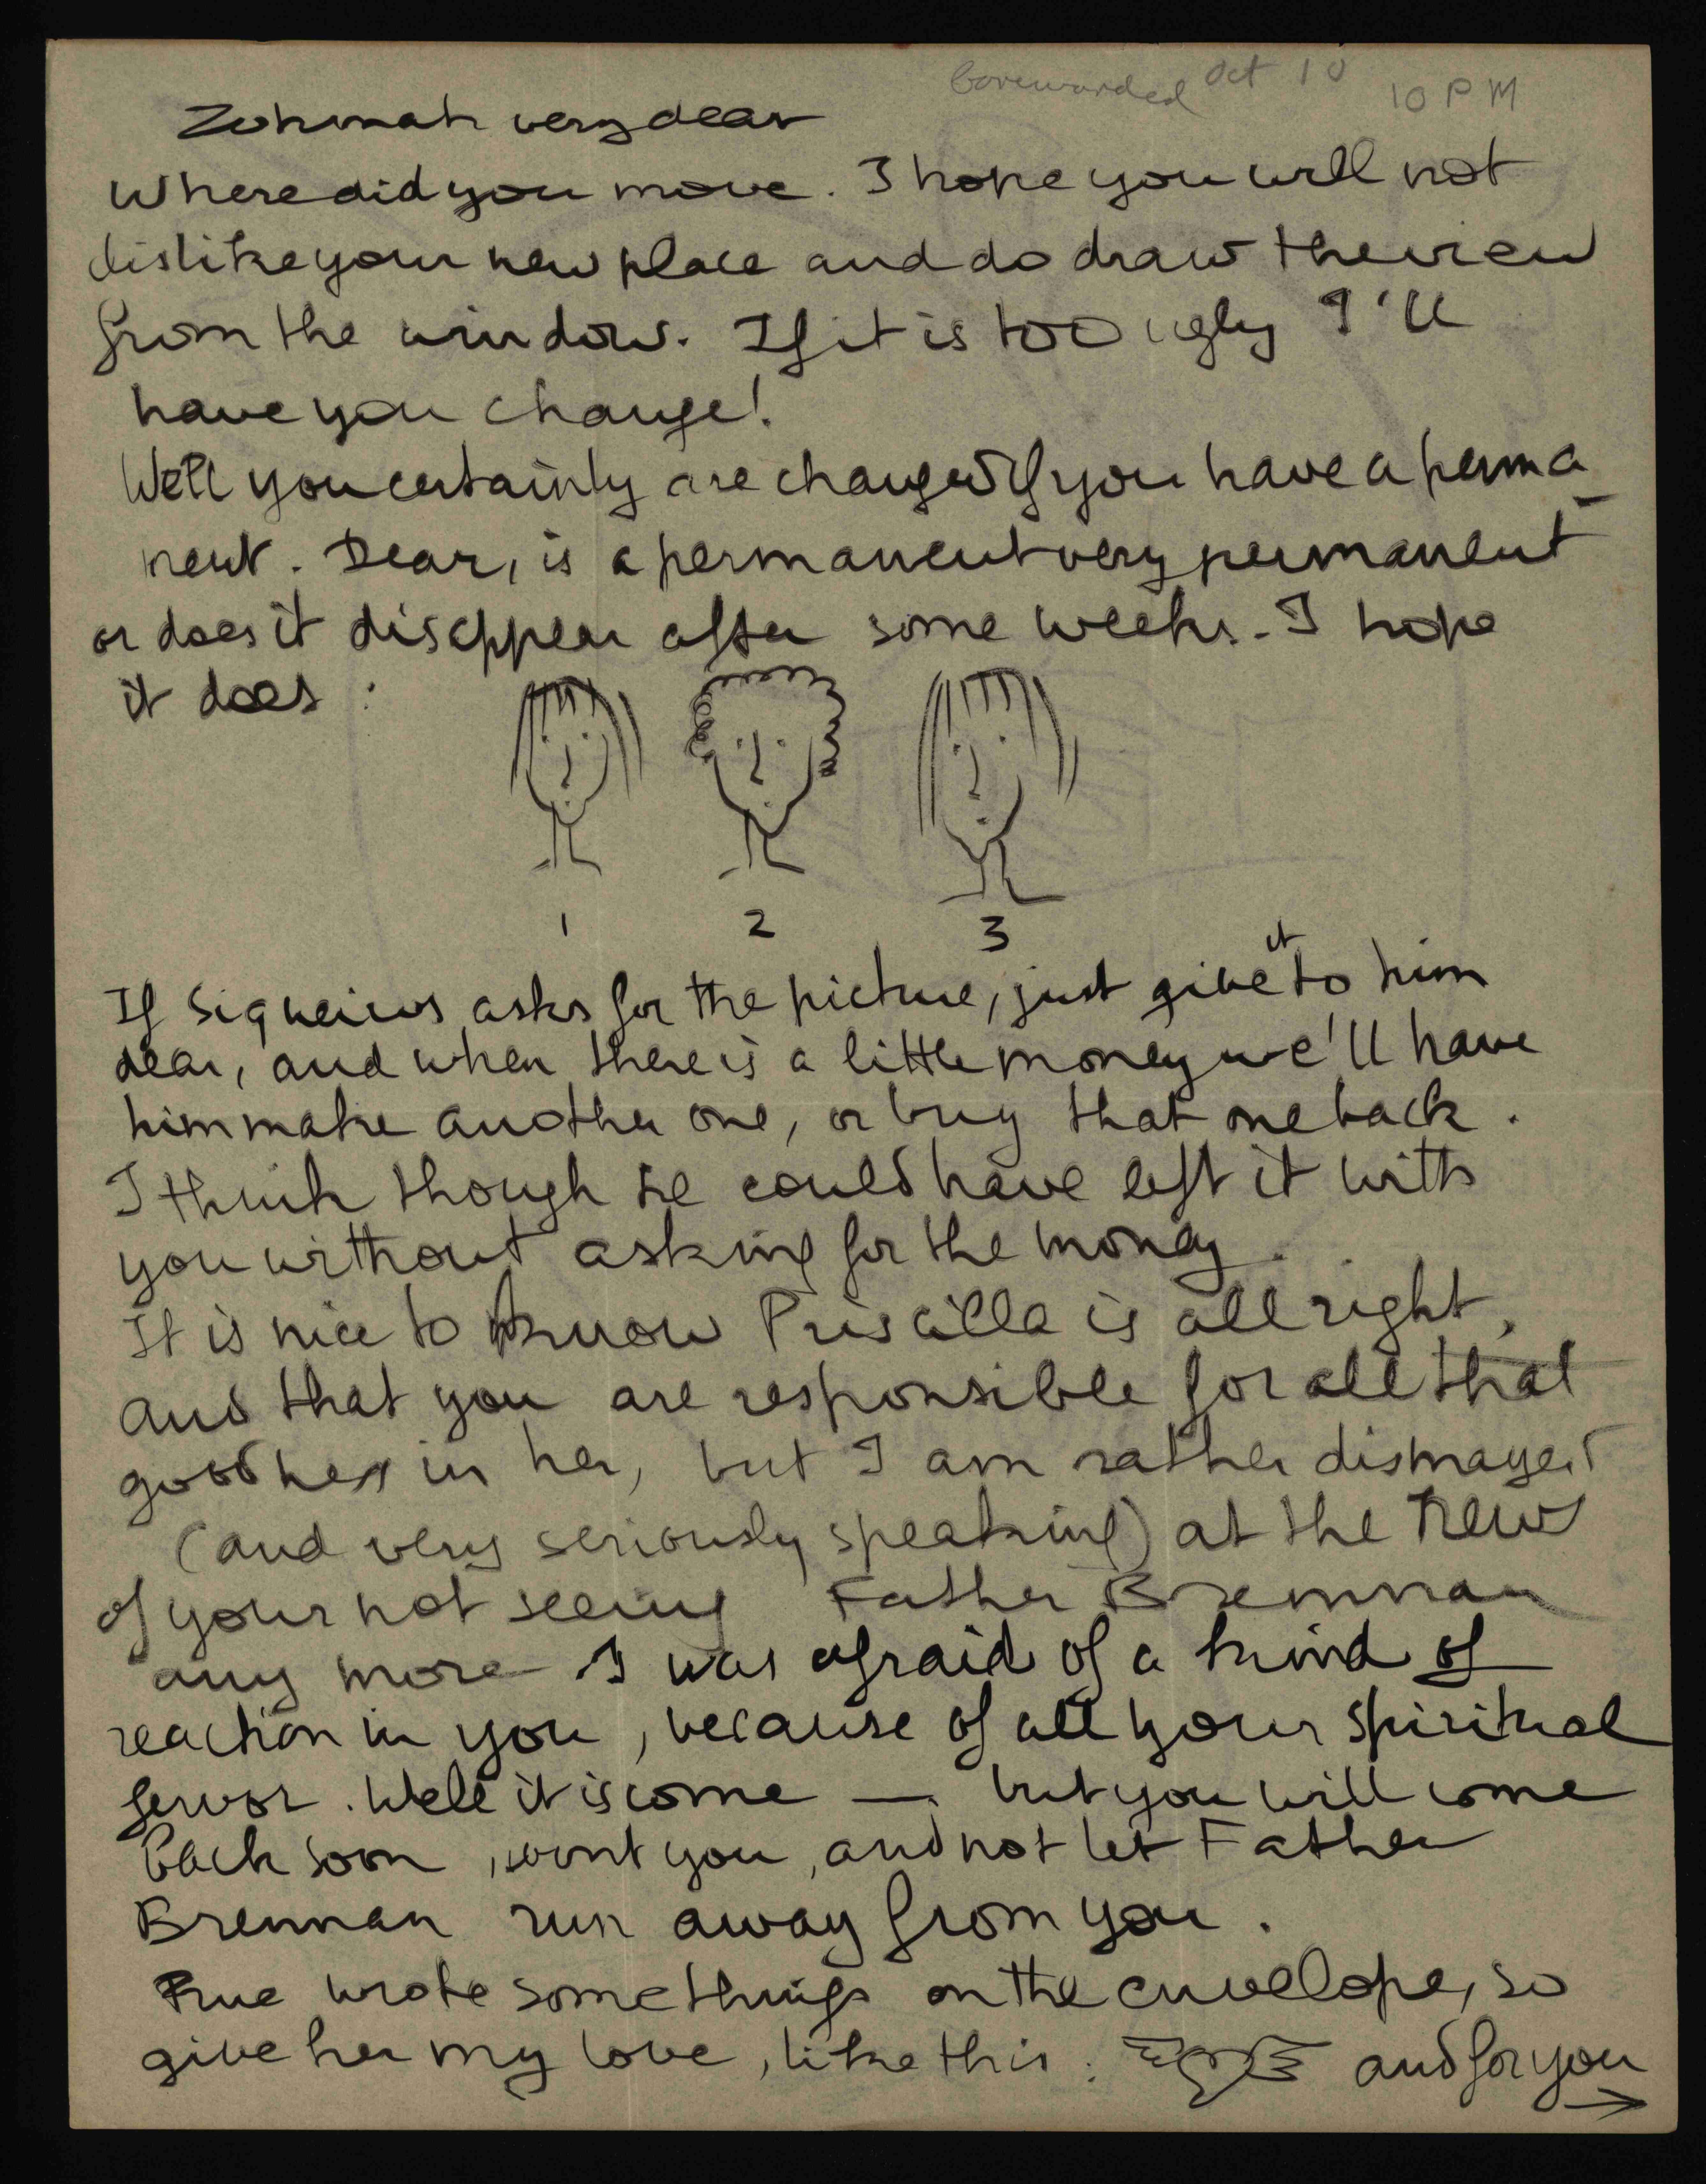 forwarded Oct 10 10 PM
Zohmah very dear
Where did you move. I hope you will not
dislike your new place and do draw the view
from the window. If it is too ugly I'll
have you change!
Well you certainly are changed if you have a perma-
nent. Dear, is a permanent very permanent
or does it disappear after some weeks. I hope
it does :
1 2 3
If Siqueiros asks for the picture, just give it to him
dear, and when there is a little money we'll have
him make another one, or buy that one back.
I think though he could have left it with
you without asking for the money.
It is nice to know Priscilla is all right,
and that you are responsible for all that
goodness in her, but I am rather dismayed
(and very seriously speaking) at the news
of your not seeing Father Brennan
any more. I was afraid of a kind of
reaction in you, because of all your spiritual
fervor. Well it is come — but you will come
back soon, wont you, and not let Father
Brennan run away from you.
Prue wrote some things on the envelope, so
give her my love, like this : and for you
→